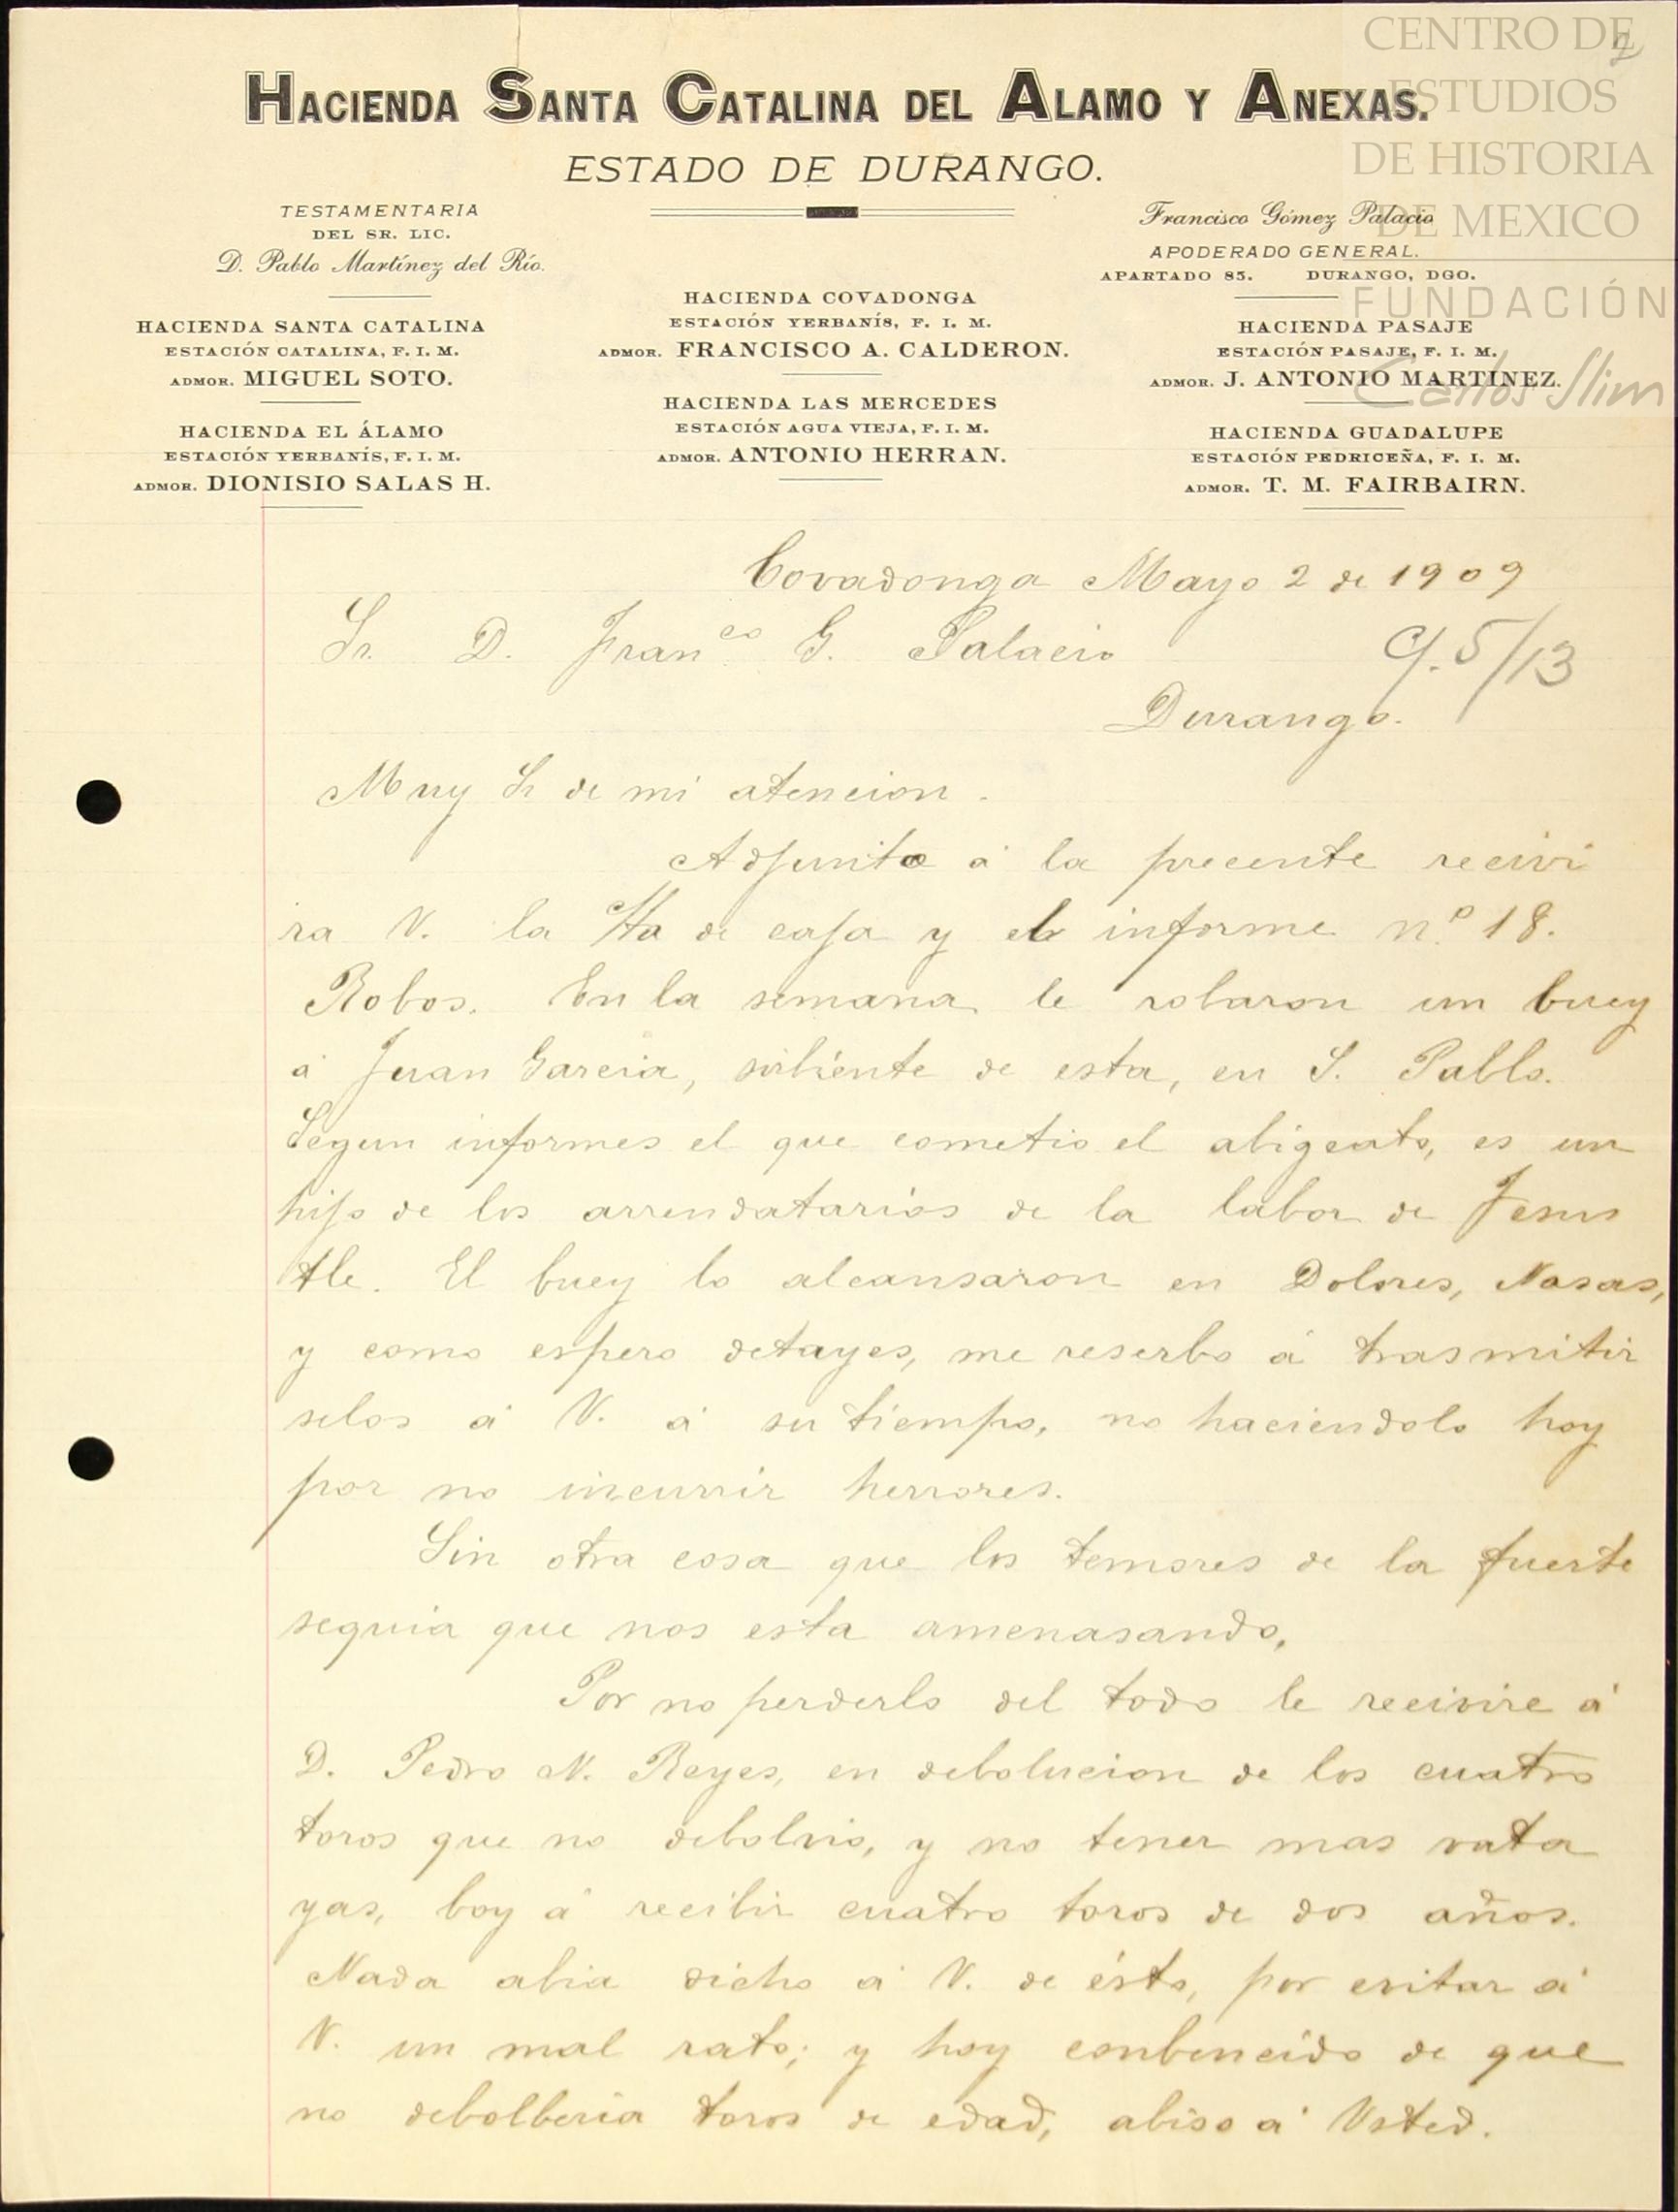 CENTRO DE
ESTUDIOS
DE HISTORIA
DE MEXICO
FUNDACIÓN
Carlos Slim
HACIENDA SANTA CATALINA DEL ALAMO Y ANEXAS.
ESTADO DE DURANGO.
TESTAMENTARIA
DEL SR. LIC.
D. Pablo Martínez del Río.
HACIENDA SANTA CATALINA
ESTACIÓN CATALINA, F. I. M.
ADMOR. MIGUEL SOTO.
HACIENDA EL ÁLAMO
ESTACIÓN YERBANÍS, F. I. M.
ADMOR. DIONISIO SALAS H.
HACIENDA COVADONGA
ESTACIÓN YERBANÍS, F. I. M.
ADMOR. FRANCISCO A. CALDERON.
HACIENDA LAS MERCEDES
ESTACIÓN AGUA VIEJA, F. I. M.
ADMOR. ANTONIO HERRAN.
Francisco Gómez Palacio
APODERADO GENERAL.
APARTADO 85. DURANGO, DGO.
HACIENDA PASAJE
ESTACIÓN PASAJE, F. I. M.
ADMOR. J. ANTONIO MARTÍNEZ.
HACIENDA GUADALUPE
ESTACIÓN PEDRICEÑA, F. I. M.
ADMOR. T. M. FAIRBAIRN.
Covadonga Mayo 2 de 1909
Sr. D. Franco G. Palacio
C. 5/13
Durango.
Muy Sr de mi atencion.
Adjunto á la precente recivi
ra V. la Cta de caja y el informe n.º 18.
Robos. En la semana le robaron un buey
á Juan Garcia, sirbiente de esta, en S. Pablo.
Segun informes el que cometio el abigeato, es un
hijo de los arrendatarios de la labor de Jesus
. El buey lo alcansaron en Dolores, Nasas,
y como espero detayes, me reserbo á trasmitir
selos á V. á su tiempo, no haciendolo hoy
por no incurrir herrores.
Sin otra cosa que los temores de la fuerte
sequia que nos esta amenasando,
Por no perderlo del todo le recivire á
D. Pedro N. Reyes, en debolucion de los cuatro
toros que no debolvio, y no tener mas vata
yas, boy á recibir cuatro toros de dos años.
Nada abia dicho á V. de ésto, por evitar á
V. un mal rato; y hoy conbencido de que
no debolberia toros de edad, abiso á Usted.